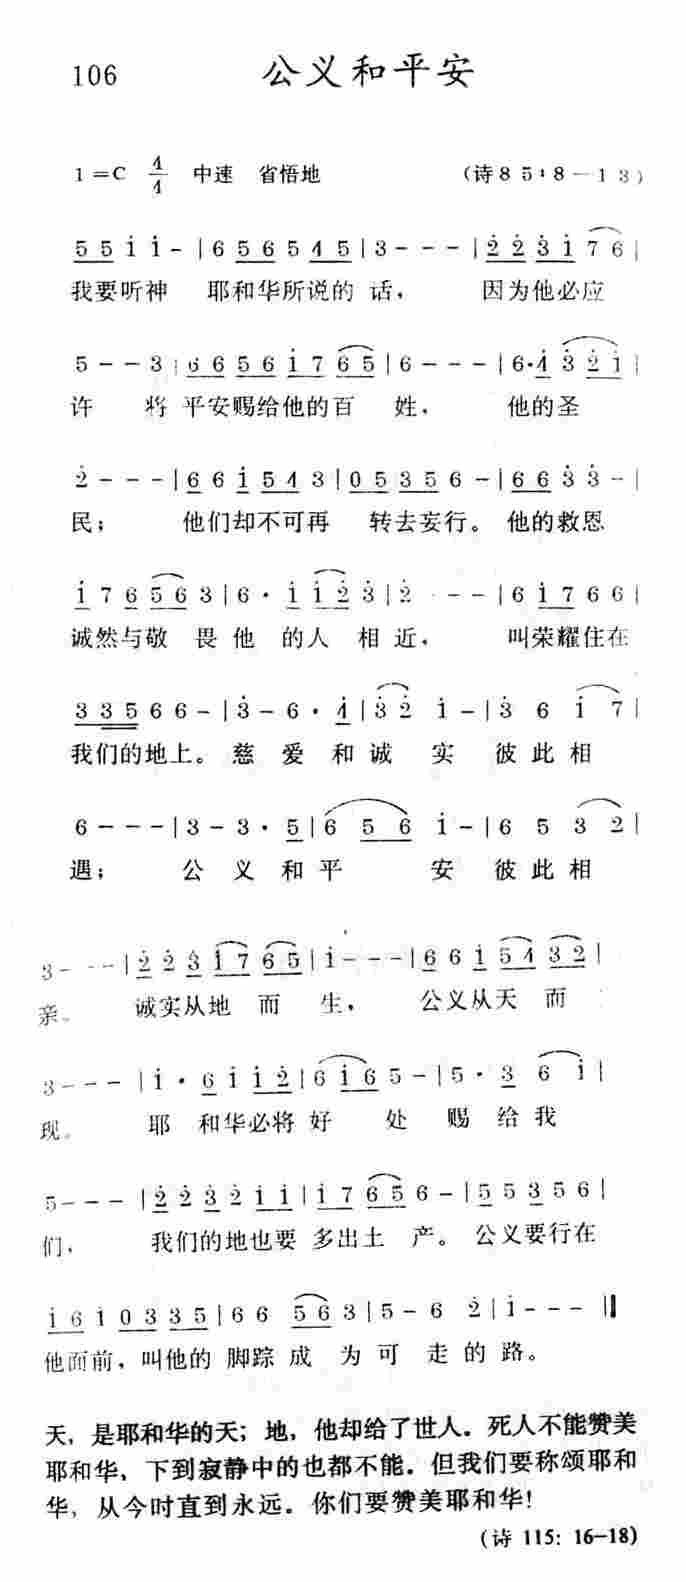 106 公义和平安
1=C 4/4 中速 省悟地 (诗85:8—13)
5 5 i i - | 6 5 6 5 4 5 | 3 - - - | 2 2 3 i 7 6 |
我要听神 耶和华所说的 话， 因为他必应
5 - - 3 | 6 6 5 6 i 7 6 5 | 6 - - - | 6· 4 3 2 i |
许 将 平安赐给他的百 姓， 他的圣
2 - - - | 6 6 i 5 4 3 | 0 5 3 5 6 - | 6 6 3 3 - |
民； 他们却不可再 转去妄行。 他的救恩
i 7 6 5 6 3 | 6 · i i 2 3 | 2 - - - | 6 i 7 6 6 |
诚然与敬 畏他 的人 相近， 叫荣耀住在
3 3 5 6 6 - | 3 - 6 · 4 | 3 2 i - | 3 6 i 7 |
我们的地上。 慈 爱 和诚 实 彼此相
6 - - - | 3 - 3 · 5 | 6 5 6 i - | 6 5 3 2 |
遇； 公 义 和平 安 彼此相
3 - - - | 2 2 3 i 7 6 5 | i - - - | 6 6 i 5 4 3 2 |
亲。 诚实从地 而 生， 公义从天 而
3 - - - | i · 6 i i 2 | 6 i 6 5 - | 5 · 3 6 i |
现。 耶 和华必将 好 处 赐 给 我
5 - - - | 2 2 3 2 i i | i 7 6 5 6 - | 5 5 3 5 6 |
们， 我们的地也要 多出土 产。 公义要行在
i 6 i 0 3 3 5 | 6 6 5 6 3 | 5 - 6 2 | i - - - ‖
他面前，叫他的 脚踪 成 为 可 走 的 路。
天，是耶和华的天；地，他却给了世人。死人不能赞美
耶和华，下到寂静中的也都不能。但我们要称颂耶和
华，从今时直到永远。你们要赞美耶和华!
(诗 115: 16-18)